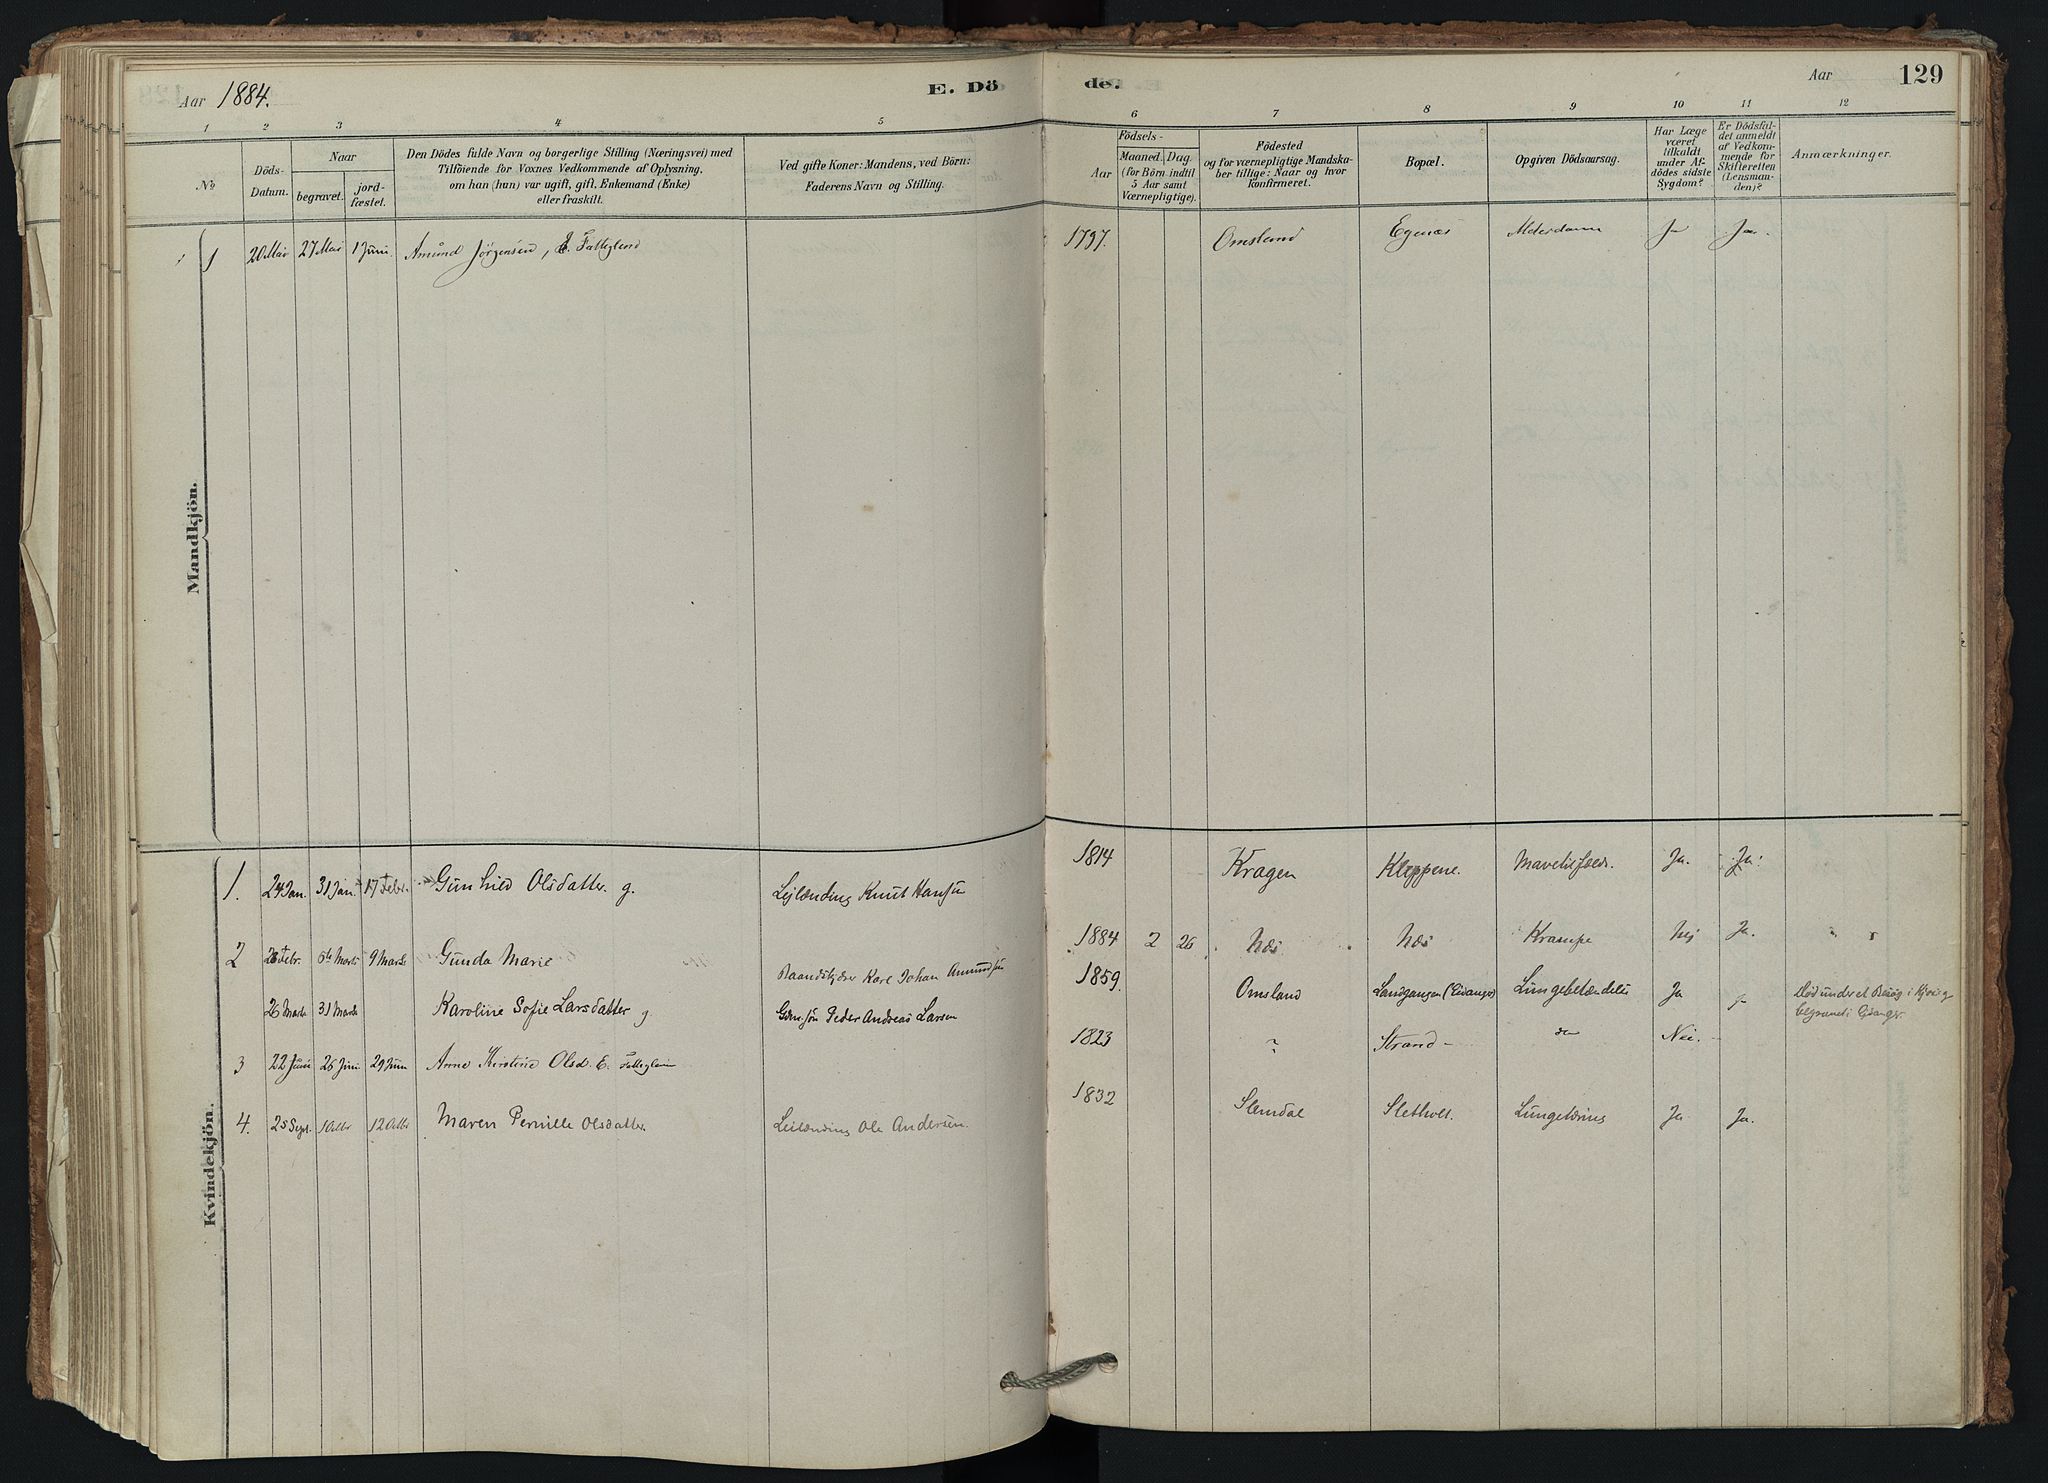 Aar 1884.
E. Dö
de.
Aar
129
1 2 3 4 5
6 7 8 9 10 11 12
No
Döds-
Datum.
Naar
begravet.
jord-
fæstet.
Den Dödes fulde Navn og borgerlige Stilling (Næringsvei) med
Tilföiende for Voxnes Vedkommende af Oplysning,
om han (hun) var ugift, gift, Enkemand (Enke)
eller fraskilt.
Ved gifte Koner: Mandens, ved Börn:
Faderens Navn og Stilling.
Födsels-
Aar
Maaned. Dag.
(for Börn indtil
5 Aar samt
Værnepligtige).
Födested
og for værnepligtige Mandska-
ber tillige: Naar og hvor
konfirmeret.
Bopæl.
Opgiven Dödsaarsag.
Har Læge
været
tilkaldt
under Af-
dödes sidste
Sygdom?
Er Dödsfal-
det anmeldt
af Vedkom-
mende for
Skifteretten
(Lensman-
den)?
Anmærkninger.
Mandkjön.
1 20 Mai 27 Mai 1 Juni Amund Jörgensen, E. Fattiglem 1797. Omsland Egenæs Alderdom Ja Ja.
Kvindekjön.
1. 24 Jan. 31 Jan. 17 Febr. Gunhild Olsdatter. g. Lejlænding Knut Hansen 1814 Kragerø Kleppene. Mavetilfælde. Ja. Ja.
2 Febr. 6te Marts 9 Marts Gunda Marie Baandskjærer Karl Johan Amundsen 1884 2 26 Næs Næs Krampe Nej Ja.
26 Marts 31 Marts Karoline Sofie Larsdatter g. Gdm.søn Peder Andreas Larsen 1859. Omsland Landgangen (Eidanger) Lungebetændelse Ja Død under et Besøg i
begravet i Eidanger.
3 22 Juni 26 Juni 29 Juni Anne Kirstine Olsd. E. Fattiglem 1823 ? Strand Nei.
4. 25 Sept. 1 Oktbr 12 Oktbr Maren Pernille Olsdatter Leilænding Ole Andersen. 1832 Slemdal Sletholt. Lungetæring Ja Ja.